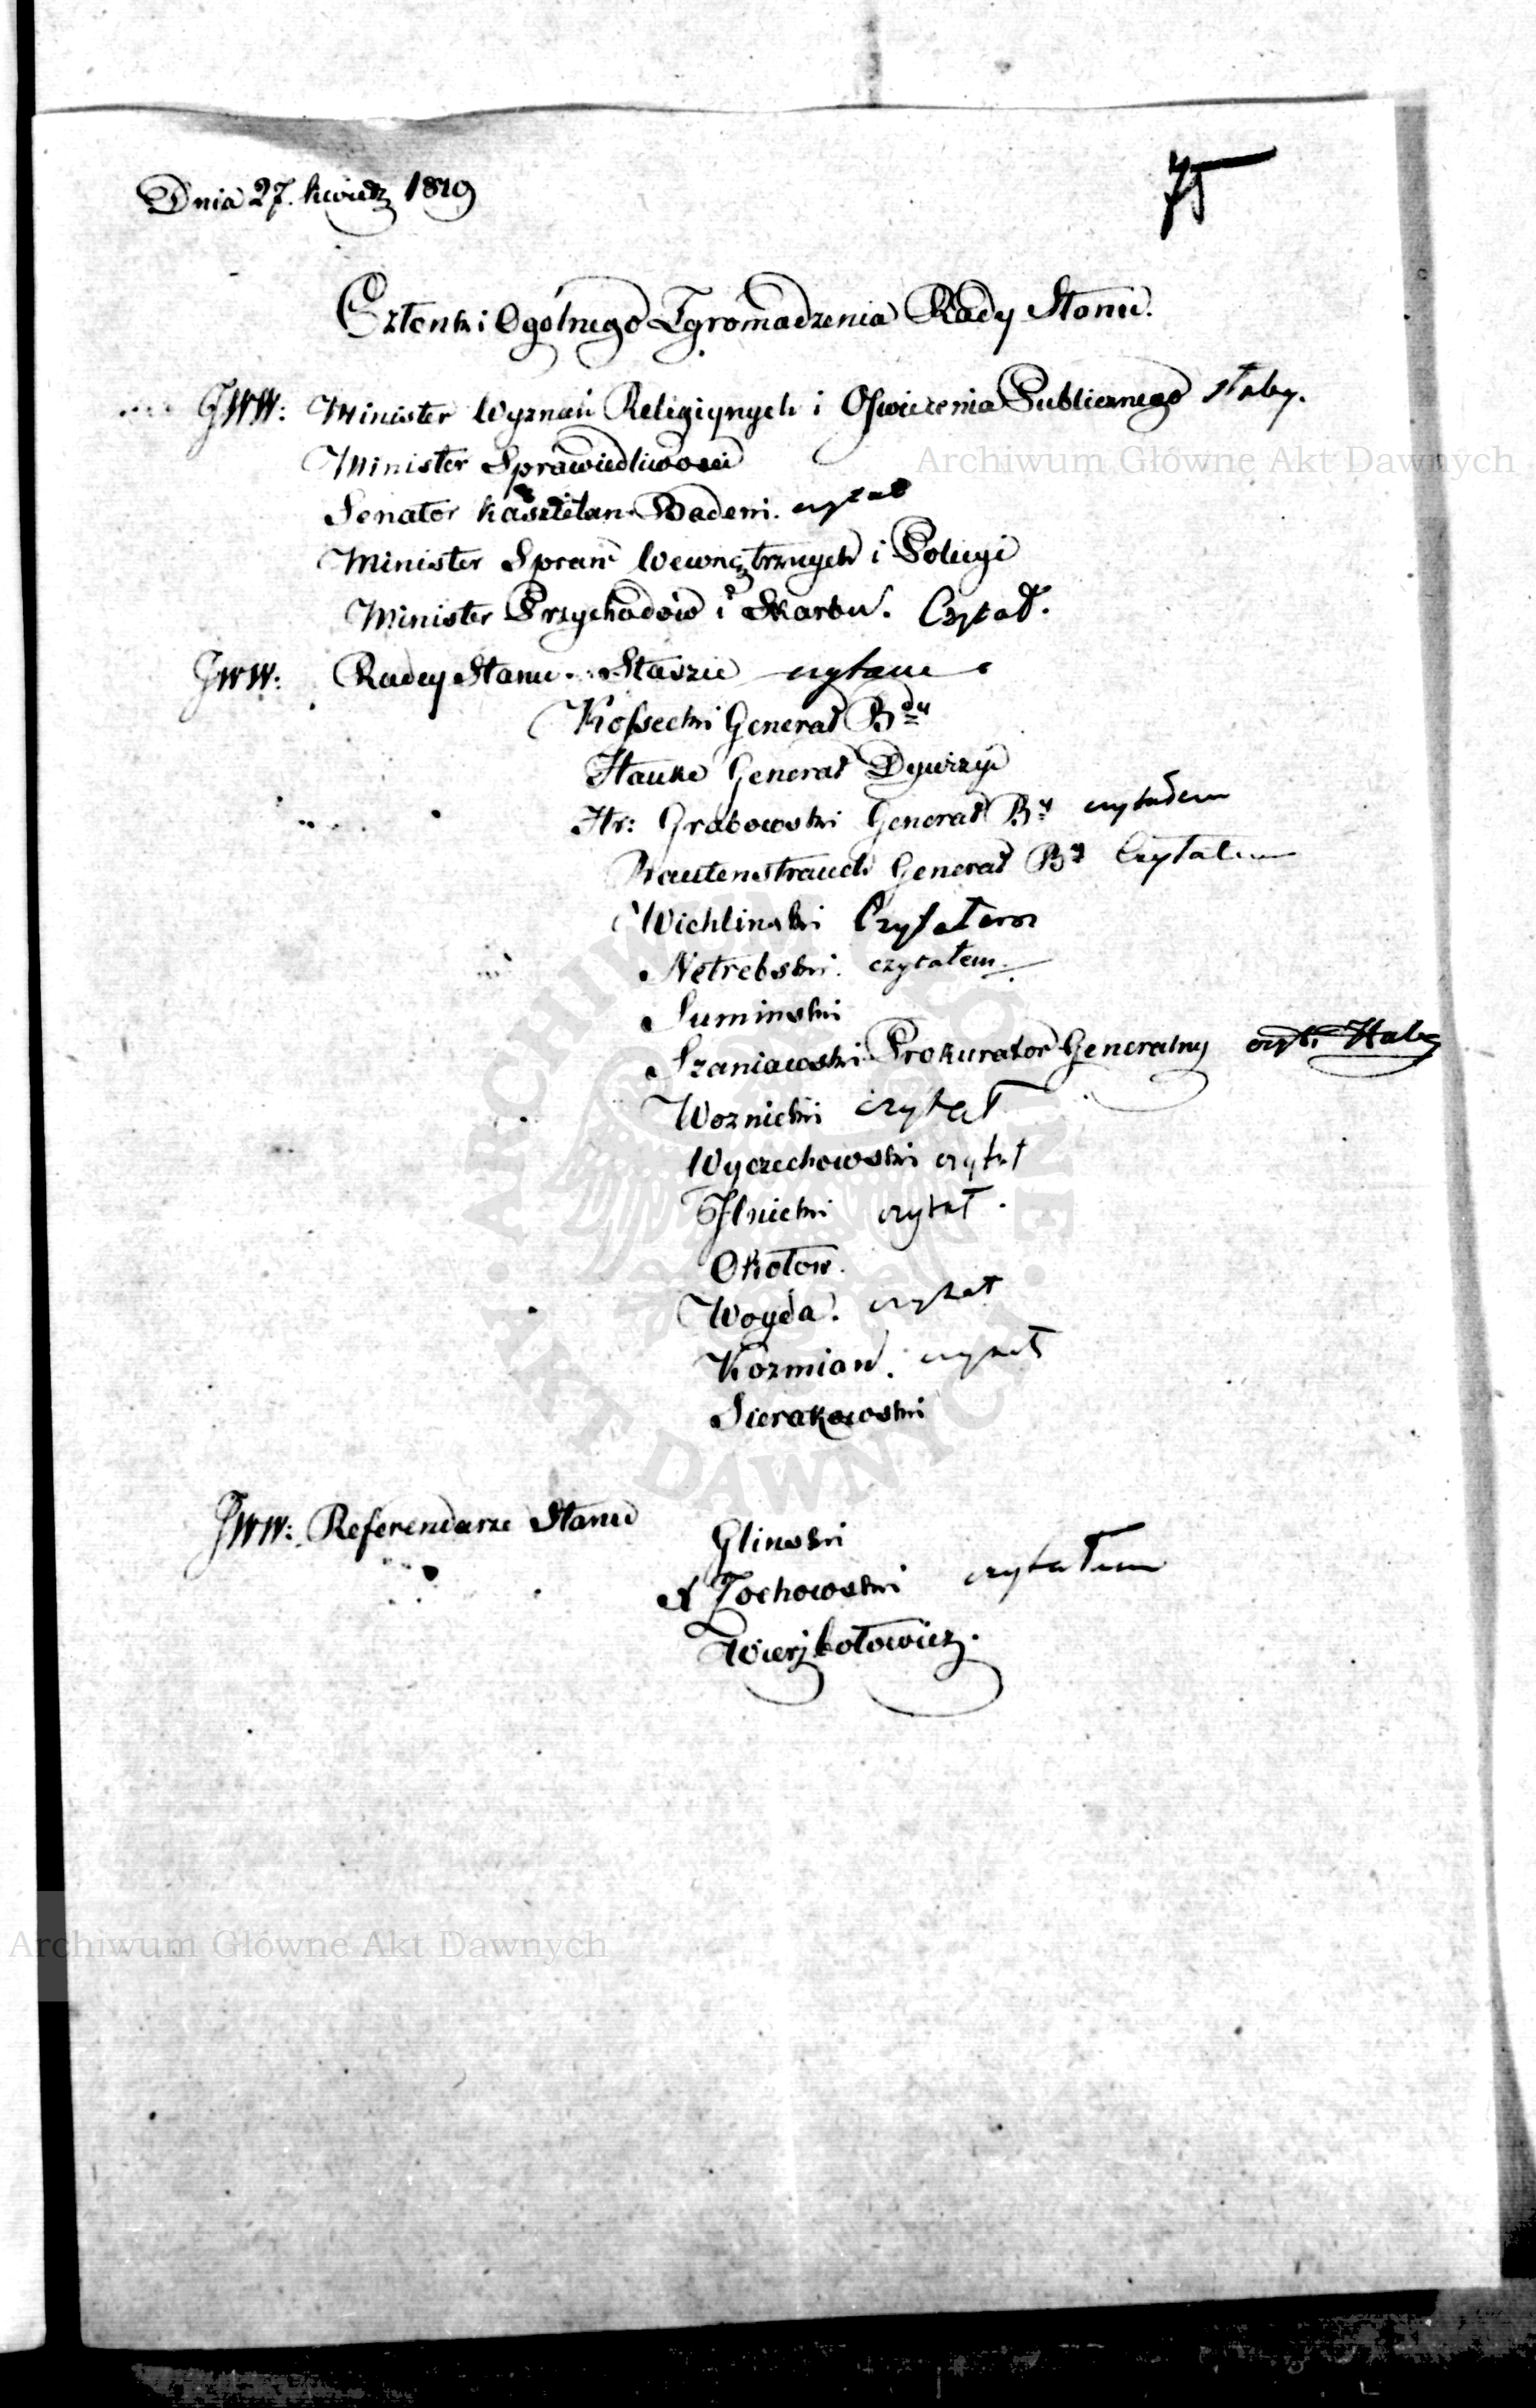 75
Dnia 27. kwietz 1819
Członki Ogólnego Zgromadzenia Rady Stanu.
JWW: Minister Wyznań Religiynych i Oświecenia Publicznego słaby.
Archiwum Główne Akt Dawnych
Minister Sprawiedliwości
Senator Kasztelan Badeni. czytał
Minister Spraw Wewnętrznych i Policyi
Minister Przychodów i Skarbu. Czytał.
JWW: Radcy Stanu. Staszic
Kossecki Generał B^dy
Hauke Generał Dywizyi
Hr: Grabowski Generał B^y czytałem
Rautenstrauch Generał B^y Czytałem
Wichlinski Czytałem
Nętrebski. czytałem.
Suminski
Szaniawski Prokurator Generalny
Woznicki czytał
Wyczechowski czytał
Jlnicki czytał.
Okołow.
Woyda. czytał
Kozmian. czytał
Sierakowski
JWW: Referendarze Stanu
Glinski
X Zochowski czytałem
Wierzbołowicz.
ARCHIWUM GŁÓWNE AKT DAWNYCH
Archiwum Główne Akt Dawnych